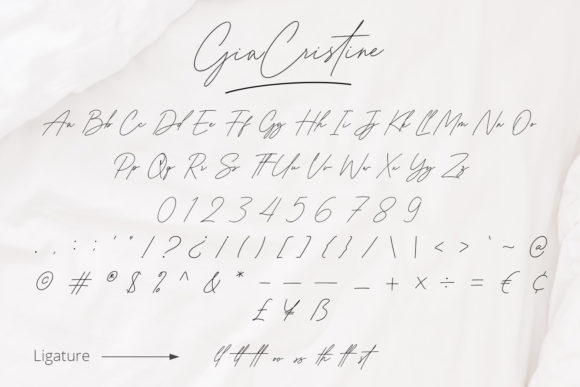 GiaCristine
Aa Bb Cc Dd Ee Ff Gg Hh Ii Jj Kk Ll Mm Nn Oo
Pp Qq Rr Ss Tt Uu Vv Ww Xx Yy Zz
0 1 2 3 4 5 6 7 8 9
. , : ; ' " ! ? ¿ / ( ) [ ] { } / \ | < > ` ~ @
© # ® $ % ^ & * – — — _ + × ÷ = € ¢
£ ¥ ß
Ligature ll tt ff oo ss th tt st